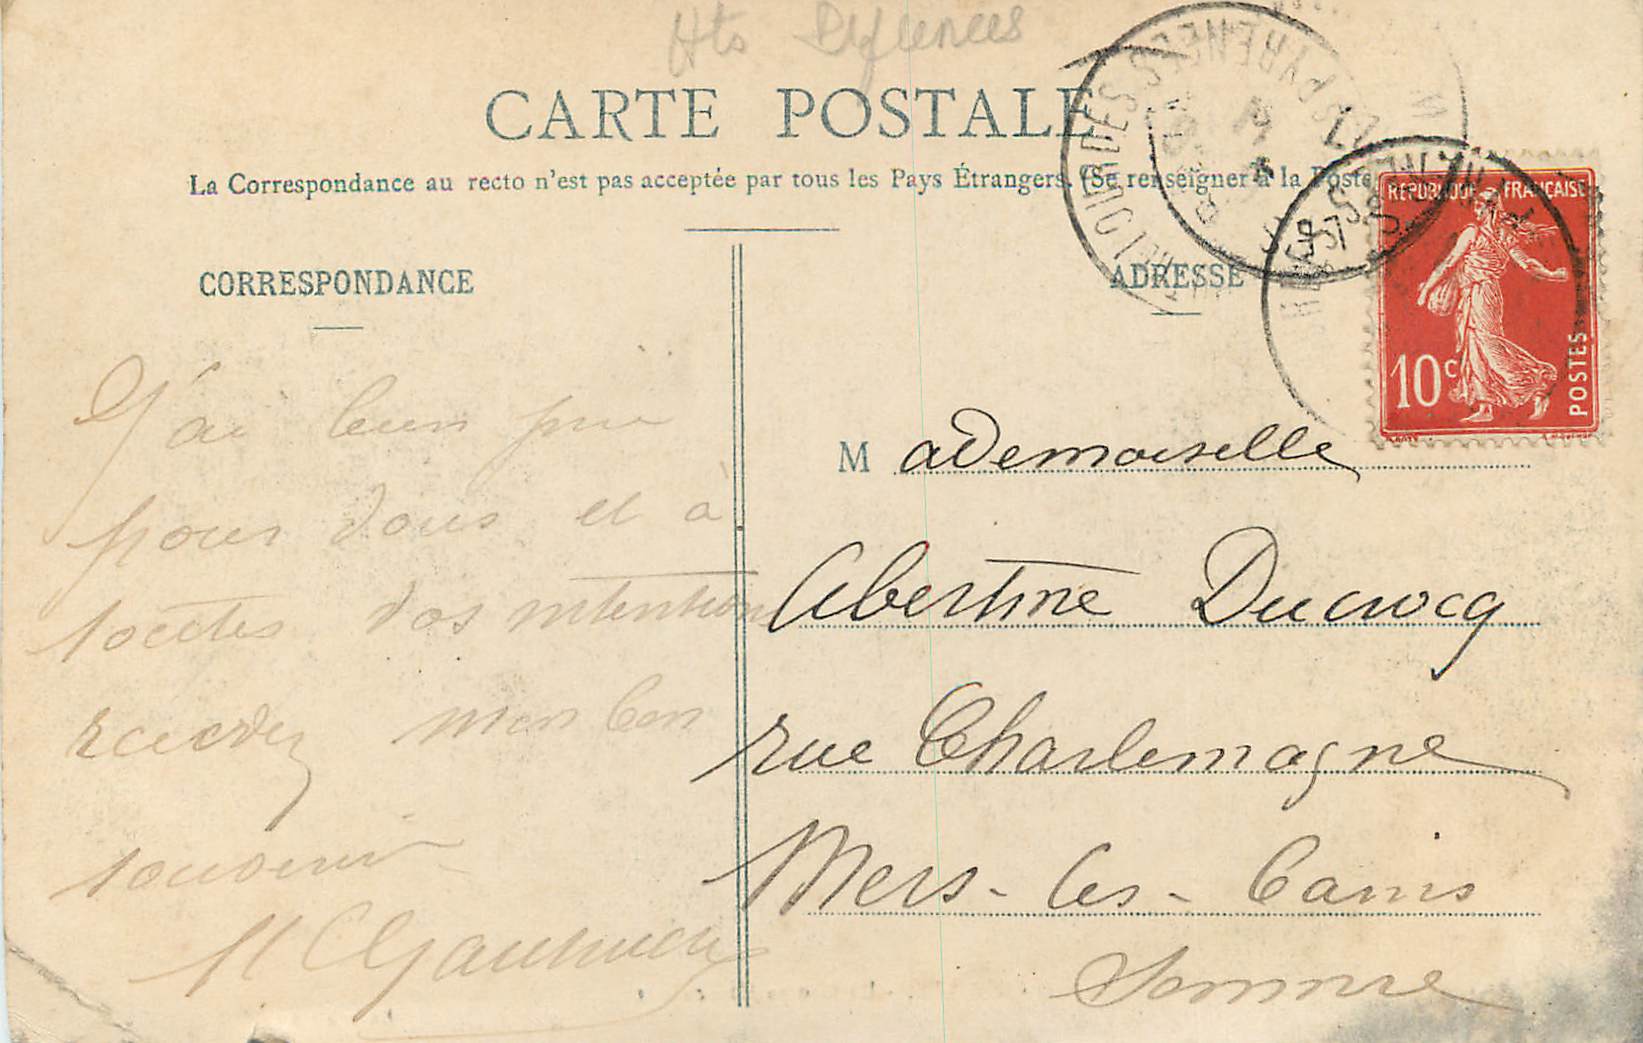 Hts Pyrenees
CARTE POSTALE
La Correspondance au recto n'est pas acceptée par tous les Pays Étrangers. (Se renseigner à la Poste
CORRESPONDANCE
ADRESSE
REPUBLIQUE FRANÇAISE
10c
POSTES
J'ai bien prié
pour vous et à
toutes vos intentions
recevez mon bon
souvenir
Mademoiselle
Abertine Ducrocq
rue Charlemagne
Mers-les-bains
Somme
PYRENEES